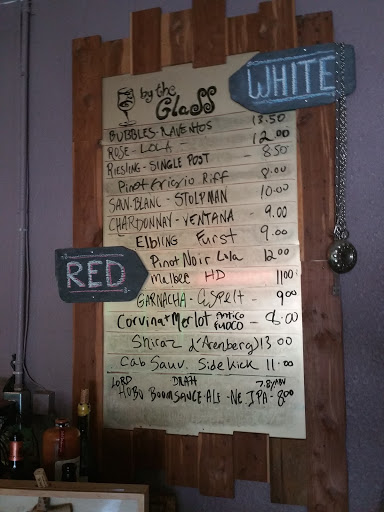 by the
Glass
WHITE
BUBBLES-RAVENTOS 13.50
ROSE-LOLA- 12.00
RIESLING-SINGLE POST - 8.50
Pinot Grigio Riff 8.00
SAUV.BLANC-STOLPMAN 10.00
CHARDONNAY-VENTANA - 9.00
Elbling Furst 9.00
RED
Pinot Noir Lola 12.00
Malbec HD 11.00
GARNACHA - - 9.00
Corvina+Merlot Antico Fuoco - 8.00
Shiraz d'Arenberg 13.00
Cab Sauv. Sidekick 11.00
DRAFT
LORD HOBO BOOMSAUCE-ALE-NE IPA-8.00
7.8% ABV